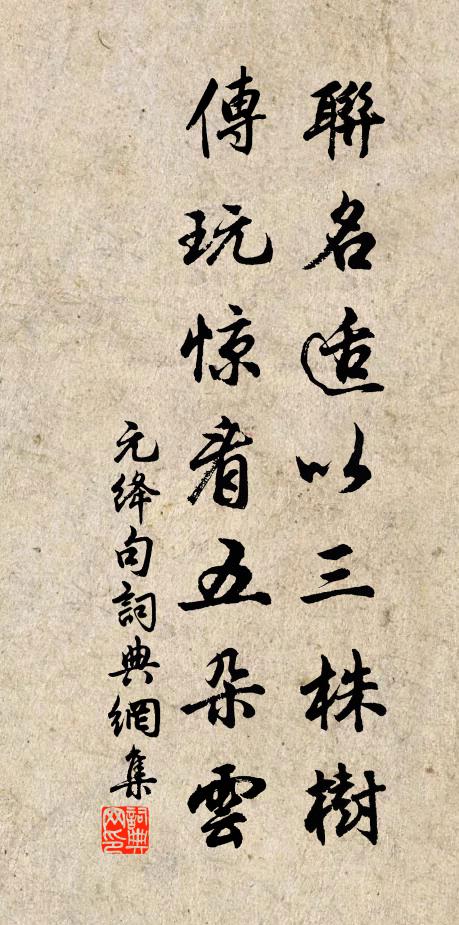 聯名适以三株樹
傳玩惊看五朵雲
元绛句詞典網集
詞典網印